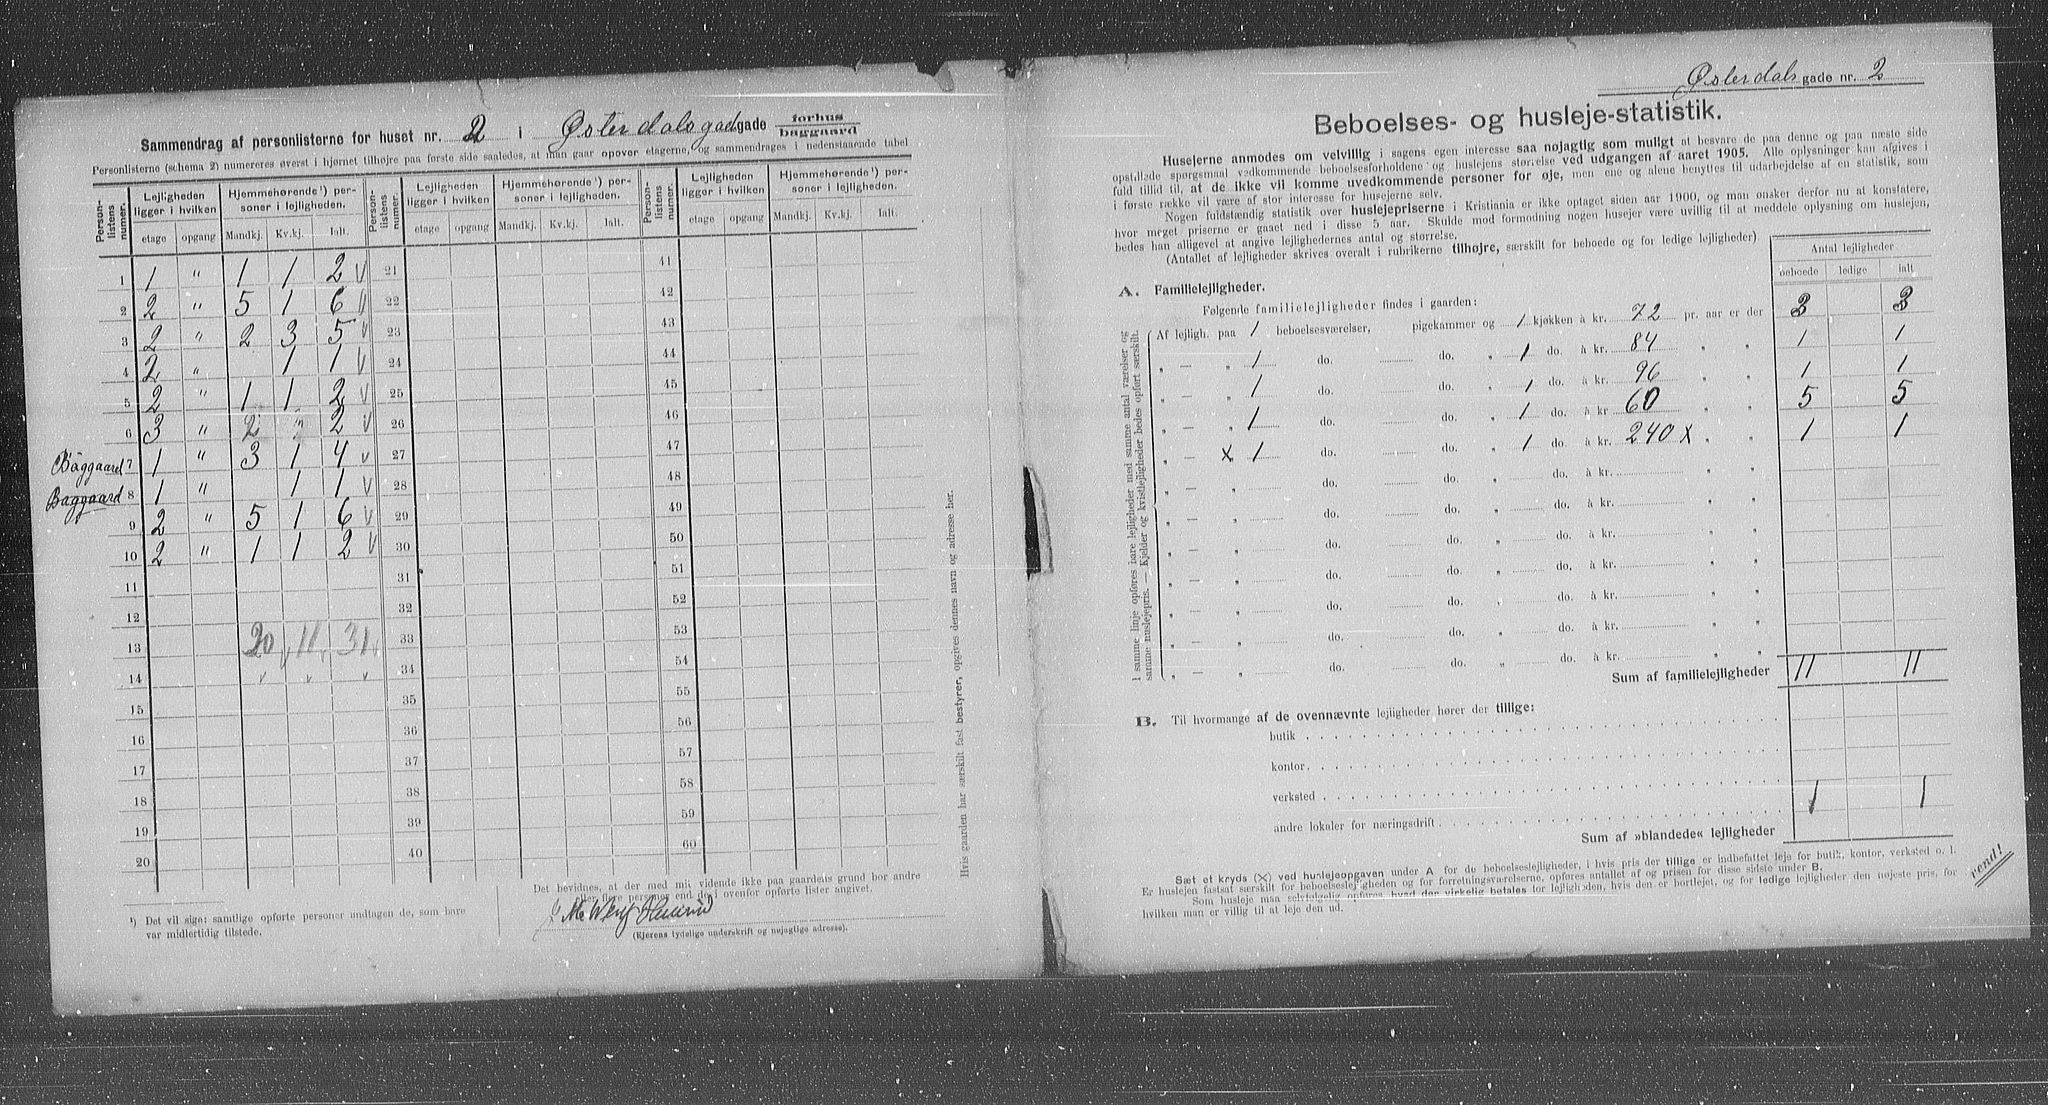 Sammendrag af personlisterne for huset nr. 2 i Østerdalsgad gade forhus baggaard
Personlisterne (schema 2) numereres øverst i hjørnet tilhøjre paa første side saaledes, at man gaar opover etagerne, og sammendrages i nedenstaaende tabel
Personlistens numer. | Lejligheden ligger i hvilken | Hjemmehørende¹) personer i lejligheden. | Personlistens numer. | Lejligheden ligger i hvilken | Hjemmehørende¹) personer i lejligheden. | Personlistens numer. | Lejligheden ligger i hvilken | Hjemmehørende¹) personer i lejligheden.
etage opgang Mandkj. Kv.kj. Ialt. etage opgang Mandkj. Kv.kj. Ialt. etage opgang Mandkj. Kv.kj. Ialt.
1 1 " 1 1 2 v 21 41
2 2 " 5 1 6 v 22 42
3 2 " 2 3 5 v 23 43
4 2 " 1 1 v 24 44
5 2 " 1 1 2 v 25 45
6 3 " 2 " 2 v 26 46
Baggaard 7 1 " 3 1 4 v 27 47
Baggaard 8 1 " 1 1 v 28 48
9 2 " 5 1 6 v 29 49
10 2 " 1 1 2 v 30 50
11 31 51
12 32 52
13 20 v 11 v 31 v 33 53
14 v v v 34 54
15 35 55
16 36 56
17 37 57
18 38 58
19 39 59
20 40 60
Hvis gaarden har særskilt fast bestyrer, opgives dennes navn og adresse her.
¹) Det vil sige: samtlige opførte personer undtagen de, som bare
var midlertidig tilstede.
Det bevidnes, at der med mit vidende ikke paa gaardens grund bor andre
eller flere personer end de i ovenfor opførte lister angivet.
(Ejerens tydelige underskrift og nøjagtige adresse).
Østerdals gade nr. 2
Beboelses- og husleje-statistik.
Husejerne anmodes om velvillig i sagens egen interesse saa nøjagtig som muligt at besvare de paa denne og paa næste side
opstillede spørgsmaal vedkommende beboelsesforholdene og huslejens størrelse ved udgangen af aaret 1905. Alle oplysninger kan afgives i
fuld tillid til, at de ikke vil komme uvedkommende personer for øje, men ene og alene benyttes til udarbejdelse af en statistik, som
i første række vil være af stor interesse for husejerne selv.
Nogen fuldstændig statistik over huslejepriserne i Kristiania er ikke optaget siden aar 1900, og man ønsker derfor nu at konstatere,
hvor meget priserne er gaaet ned i disse 5 aar. Skulde mod formodning nogen husejer være uvillig til at meddele oplysning om huslejen,
bedes han alligevel at angive lejlighedernes antal og størrelse.
(Antallet af lejligheder skrives overalt i rubrikerne tilhøjre, særskilt for beboede og for ledige lejligheder)
Antal lejligheder
beboede ledige ialt
A. Familielejligheder.
Følgende familielejligheder findes i gaarden:
I samme linje opføres bare lejligheder med samme antal værelser og
samme huslejepris. — Kjelder og kvistlejligheder bedes opført særskilt.
Af lejligh. paa 1 beboelsesværelser, pigekammer og 1 kjøkken à kr. 72 pr. aar er der 3 3
„ — „ 1 do. do. „ 1 do. à kr. 84 „ „ 1 1
„ — „ 1 do. do. „ 1 do. à kr. 96 „ „ 1 1
„ — „ 1 do. do. „ 1 do. à kr 60 „ „ 5 5
„ — x „ 1 do. do. „ 1 do. à kr. 240 x „ „ 1 1
„ — „ do. do. „ do. à kr. „ „
„ — „ do. do. „ do. à kr. „ „
„ — „ do. do. „ do. à kr. „ „
„ — „ do. do. „ do. à kr. „ „
„ — „ do. do. „ do. à kr. „ „
„ — „ do. do. „ do. à kr. „ „
„ — „ do. do. „ do. à kr. „ „
Sum af familielejligheder 11 11
B. Til hvormange af de ovennævnte lejligheder hører der tillige:
butik
kontor
verksted 1 1
andre lokaler for næringsdrift
Sum af »blandede« lejligheder
Sæt et kryds (X) ved huslejeopgaven under A for de beboelseslejligheder, i hvis pris der tillige er indbefattet leje for butik, kontor, verksted o. l.
Er huslejen fastsat særskilt for beboelseslejligheden og for forretningsværelserne, opføres antallet af og prisen for disse sidste under B.
Som husleje maa selvfølgelig opføres hvad der virkelig betales for lejligheden, hvis den er bortlejet, og for ledige lejligheder den nøjeste pris, for
hvilken man er villig til at leje den ud.
vend!